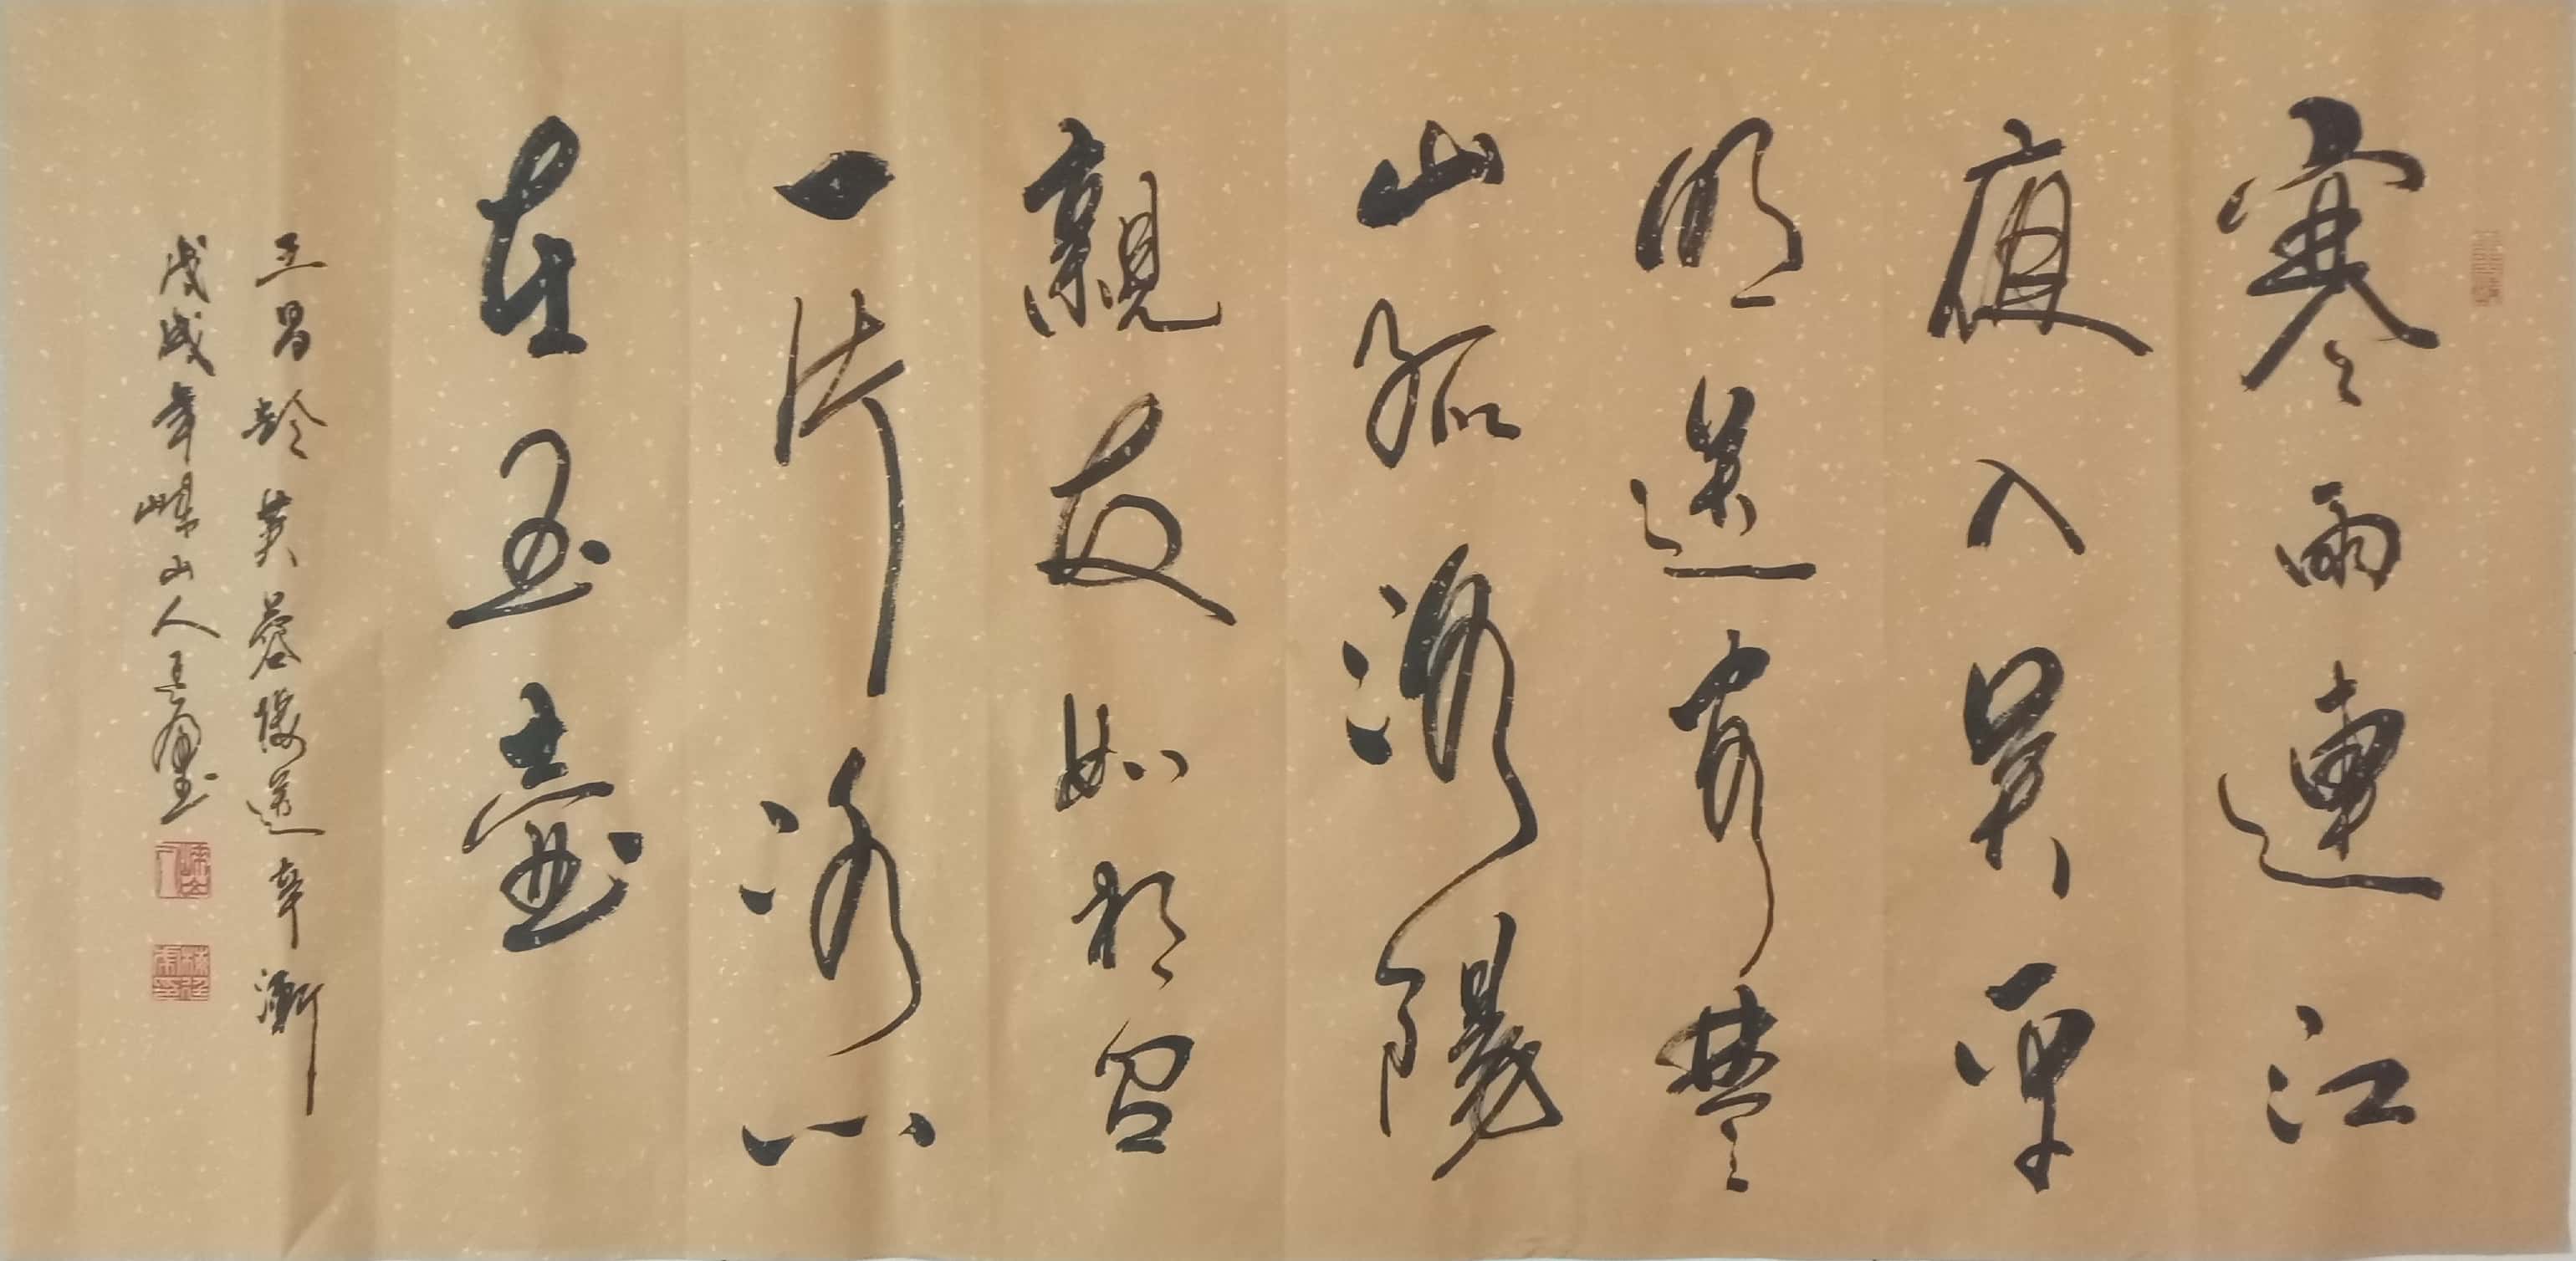 寒雨連江
夜入吴平
明送客楚
山孤洛陽
親友如相问
一片冰心
在玉壶
王昌龄芙蓉楼送辛渐
戊戌年嵊山人